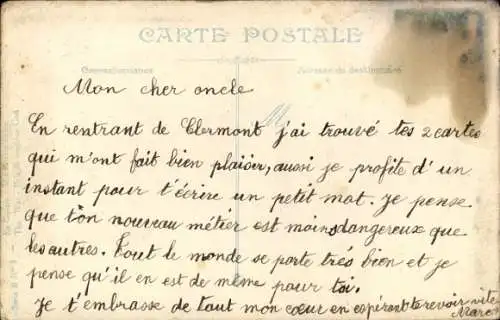 CARTE POSTALE
Correspondance Adresse du destinataire
Mon cher oncle
En rentrant de Clermont j'ai trouvé tes 2 cartes
qui m'ont fait bien plaisir, aussi je profite d'un
instant pour t'écrire un petit mot. Je pense
que ton nouveau métier est moins dangereux que
les autres. Tout le monde se porte très bien et je
pense qu'il en est de même pour toi.
Je t'embrasse de tout mon cœur en espérant te revoir vite
Marc